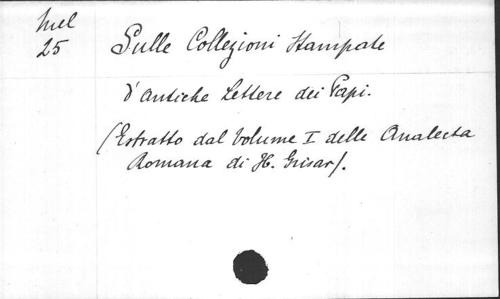 Mel
25
Sulle Collezioni Stampate
d'Antiche Lettere dei Papi.
(Estratto dal Volume I delle Analecta
Romana di H. Grisar).